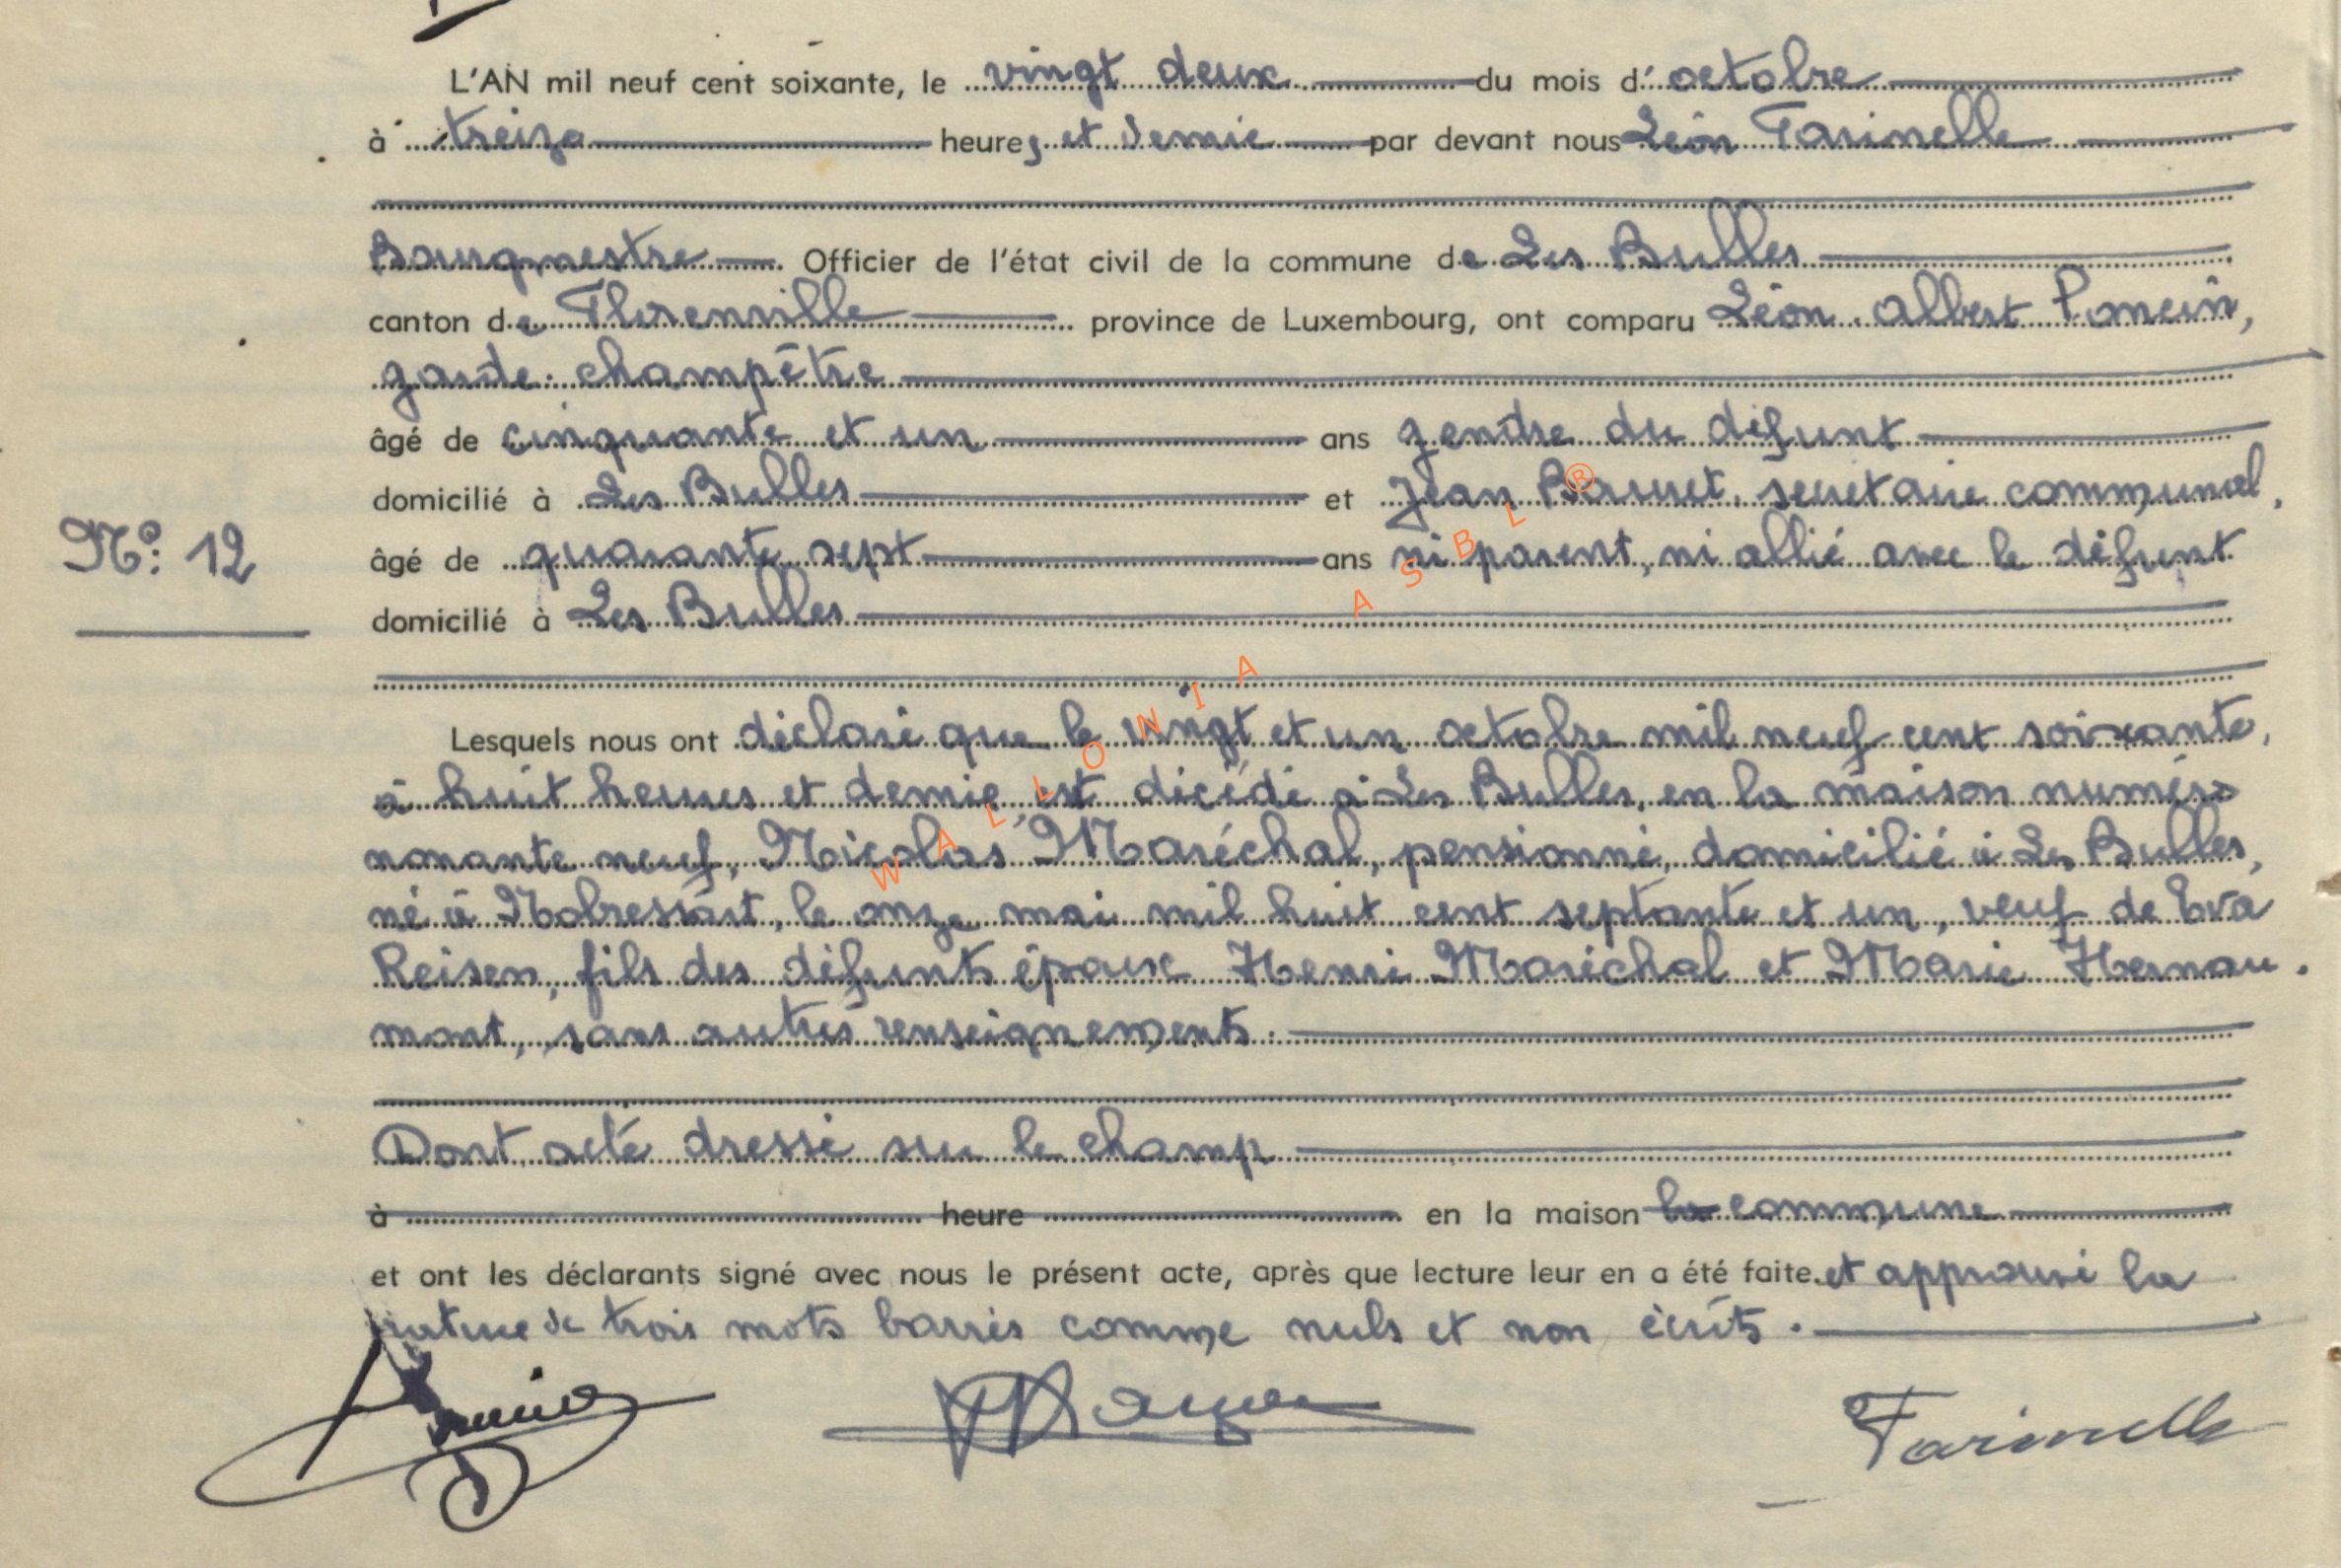 L'AN mil neuf cent soixante, le vingt deux du mois d' octobre
à treize heures et demie par devant nous Léon Farinelle
Bourgmestre Officier de l'état civil de la commune de Les Bulles
canton de Florenville province de Luxembourg, ont comparu Léon Albert Poncin,
garde champêtre
âgé de cinquante et un ans gendre du défunt
domicilié à Les Bulles et Jean secrétaire communal,
N° 12
âgé de quarante sept ans ni parent, ni allié avec le défunt
domicilié à Les Bulles
Lesquels nous ont déclaré que le vingt et un octobre mil neuf cent soixante,
à huit heures et demie, est décédé à Les Bulles, en la maison numéro
nonante neuf, Nicolas Maréchal, pensionné, domicilié à Les Bulles,
né à Nobressart, le onze mai mil huit cent septante et un, veuf de Eva
Reisen, fils des défunts époux Henri Maréchal et Marie Hernau-
mont, sans autres renseignements.
Dont acte dressé sur le champ
à heure en la maison la commune
et ont les déclarants signé avec nous le présent acte, après que lecture leur en a été faite. et approuvé la
rature de trois mots barrés comme nuls et non écrits.
Farinelle
WALLONIA ASBL ®